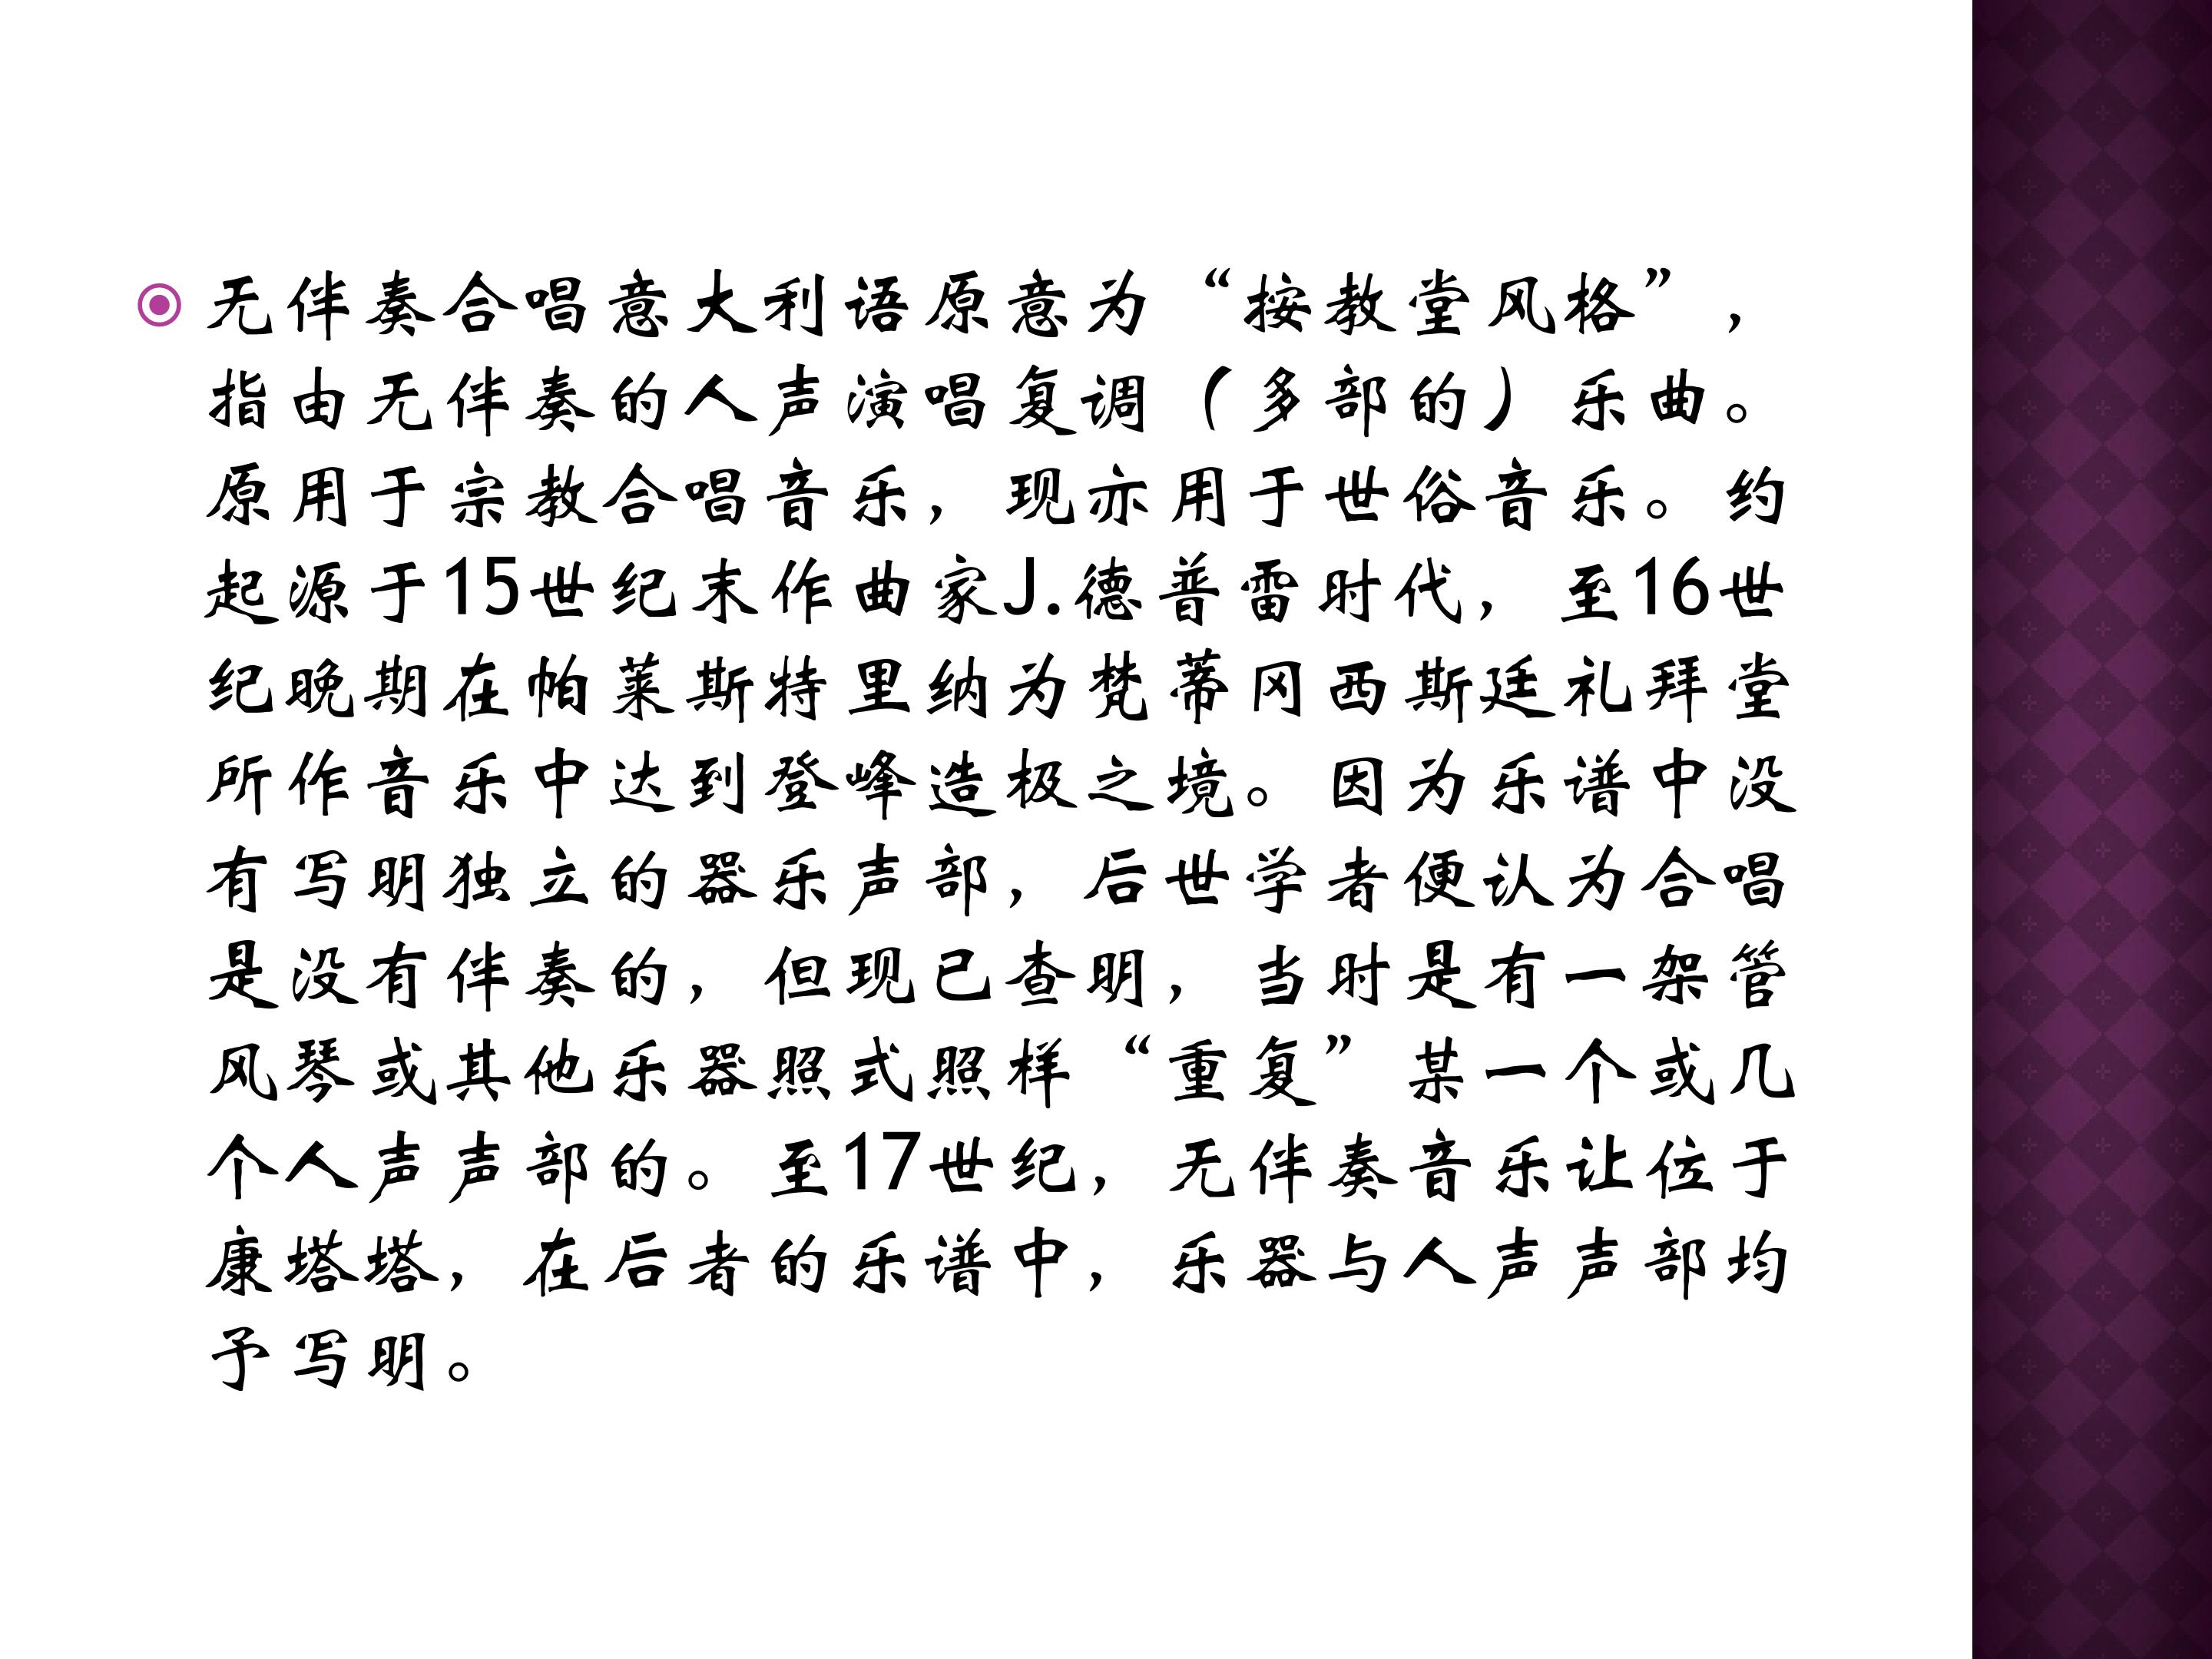 无伴奏合唱意大利语原意为“按教堂风格”，
指由无伴奏的人声演唱复调（多部的）乐曲。
原用于宗教合唱音乐，现亦用于世俗音乐。约
起源于15世纪末作曲家J.德普雷时代，至16世
纪晚期在帕莱斯特里纳为梵蒂冈西斯廷礼拜堂
所作音乐中达到登峰造极之境。因为乐谱中没
有写明独立的器乐声部，后世学者便认为合唱
是没有伴奏的，但现已查明，当时是有一架管
风琴或其他乐器照式照样“重复”某一个或几
个人声声部的。至17世纪，无伴奏音乐让位于
康塔塔，在后者的乐谱中，乐器与人声声部均
予写明。